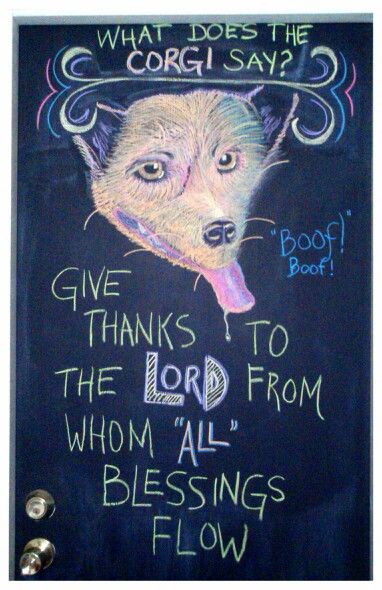 WHAT DOES THE
CORGI SAY?
"BOOF!"
BOOF!
GIVE
THANKS TO
THE LORD FROM
WHOM "ALL"
BLESSINGS
FLOW